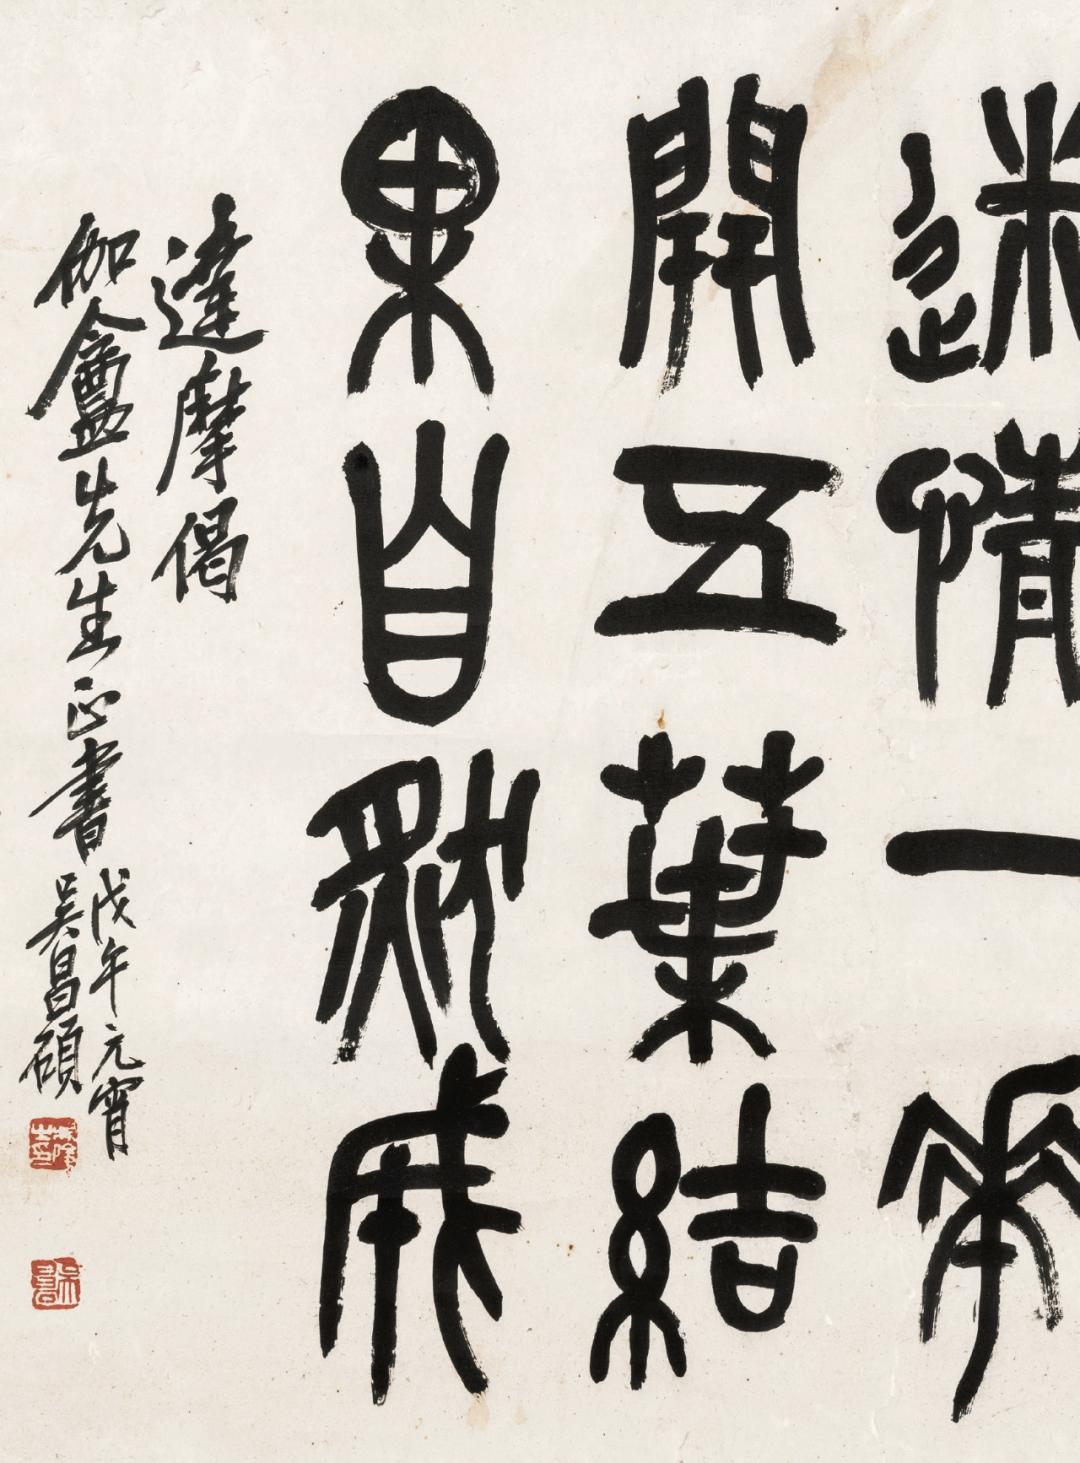 迷情一花
開五葉結
果自然成
達摩偈
伽盦先生正書
戊午元宵
吳昌碩